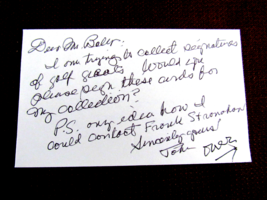 Dear Mr. Baker:
I am trying to collect signatures
of golf greats Would you
please sign these cards for
my collection?
P.S. any idea how I
could contact Frank Stranahan
Sincerely yours!
John over